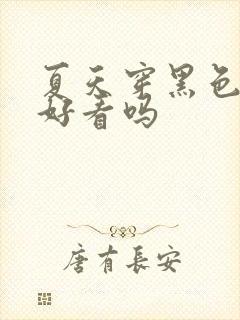 夏天穿黑色
好看吗
唐有長安